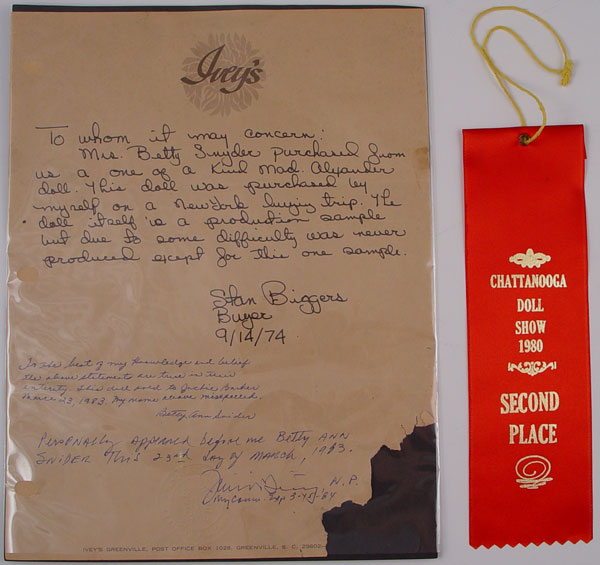 Ivey's
To whom it may concern:
Mrs. Betty Snyder purchased from
us a one of a kind Mad. Alyander
doll. This doll was purchased by
myself on a New York buying trip. The
doll itself is a production sample
but due to some difficulty was never
produced except for this one sample.
Stan Biggers
Buyer
9/14/74
To the best of my knowledge and belief
the above statements are true in their
entirety. This doll sold to Jackie Barker
March 23, 1983. My name above misspelled.
Betty Ann Snider
Personally appeared before me Betty Ann
Snider this 23rd day of March, 1983.
N.P.
My Comm. Exp 3-
IVEY'S GREENVILLE, POST OFFICE BOX 1028, GREENVILLE, S. C. 29602
CHATTANOOGA
DOLL
SHOW
1980
SECOND
PLACE